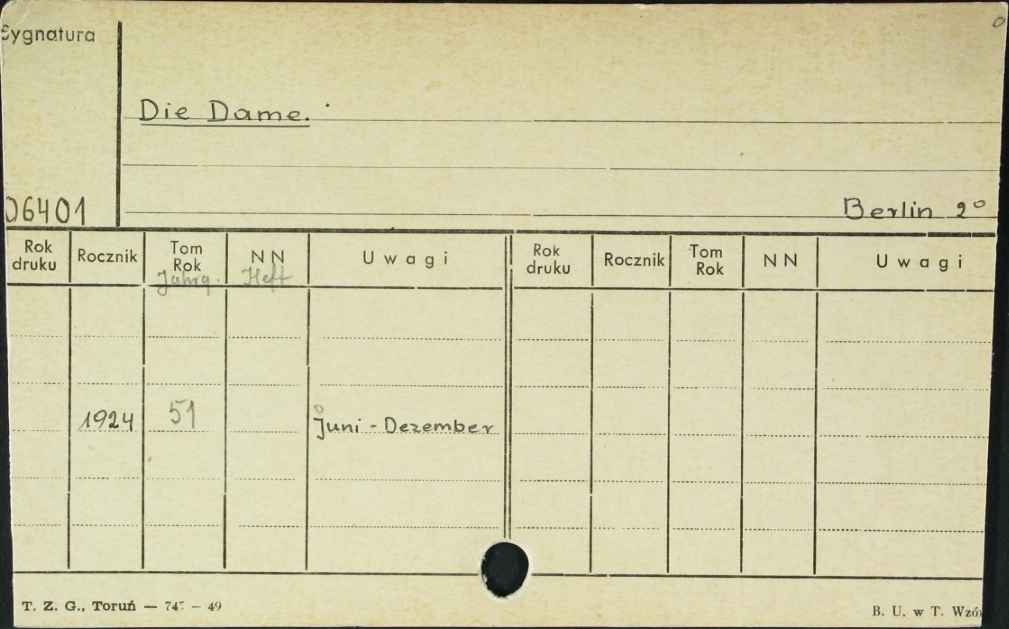 Sygnatura
Die Dame.
06401
Berlin 2°
Rok druku Rocznik Tom Rok NN Uwagi Rok druku Rocznik Tom Rok NN Uwagi
Jahrg. Heft
1924 51 Juni - Dezember
T. Z. G., Toruń — 747 — 49
B. U. w T. Wzór